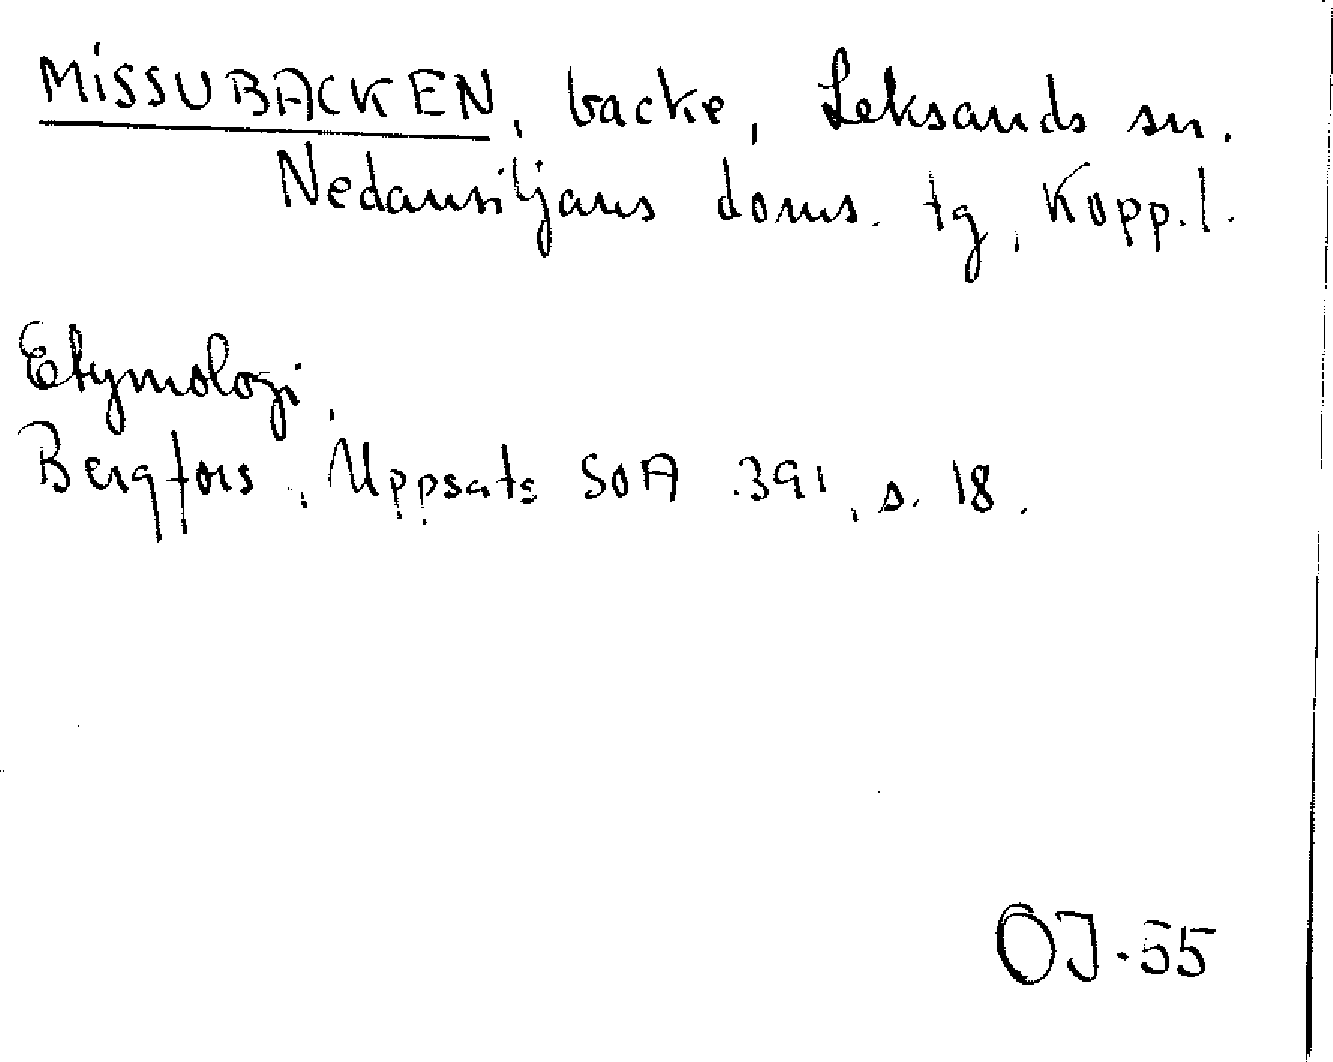 MISSUBACKEN, backe, Leksands sn.
Nedansiljans doms. tg, Kopp. l.
Etymologi.
Bergfors, Uppsats SOA 391, s. 18.
OJ-55